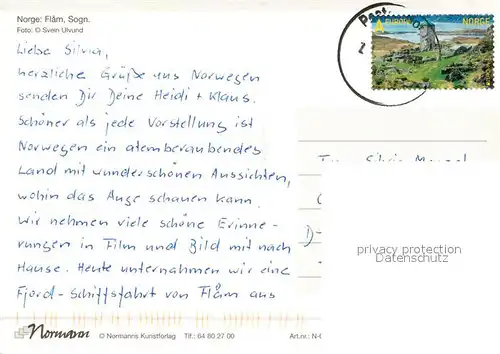 Norge: Flåm, Sogn.
Foto: © Svein Ulvund
A EUROPA NORGE
Liebe Silvia,
herzliche Grüße aus Norwegen
senden Dir Deine Heidi + Klaus.
Schöner als jede Vorstellung ist
Norwegen ein atemberaubendes
Land mit wunderschönen Aussichten,
wohin das Auge schauen kann.
Wir nehmen viele schöne Erinne-
rungen in Film und Bild mit nach
Hause. Heute unternahmen wir eine
Fjord-Schiffsfahrt von Flåm aus
D-
privacy protection
Datenschutz
Normann © Normanns Kunstforlag Tlf.: 64 80 27 00 Art.nr.: